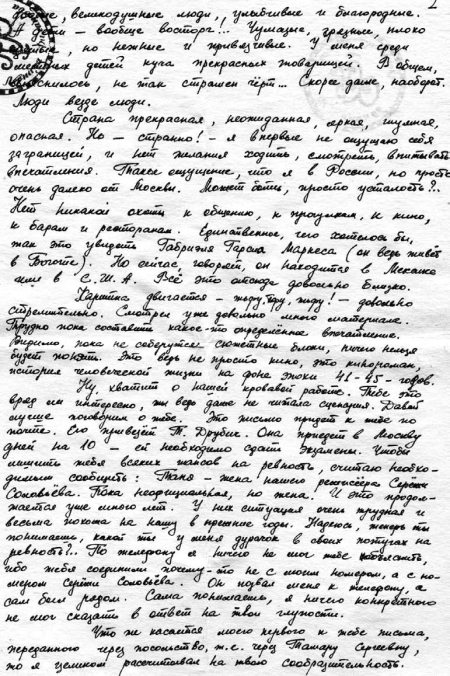 2
добрые, великодушные люди, улыбчивые и благородные.
А дети – вообще восторг!.. Чумазые, грязные, плохо
но нежные и привязчивые. У меня среди
местных детей куча прекрасных товарищей. В общем,
выяснилось, не так страшен чёрт... Скорее даже, наоборот.
Люди везде люди.
Страна прекрасная, неожиданная, яркая, шумная,
опасная. Но – странно! – я впервые не ощущаю себя
заграницей, и нет желания ходить, смотреть, впитывать
впечатления. Такое ощущение, что я в России, но просто
очень далеко от Москвы. Может быть, просто усталость?..
Нет никакой охоты к общению, к прогулкам, к кино,
к барам и ресторанам. Единственное, чего хотелось бы,
так это увидеть Габриэля Гарсиа Маркеса (он ведь живёт
в Боготе). Но сейчас, говорят, он находится в Мексике
или в С.Ш.А. Всё это отсюда довольно близко.
Картина двигается – тьфу, тьфу, тьфу! – довольно
стремительно. Смотрел уже довольно много материала.
Трудно пока составить какое-то определённое впечатление.
Видимо, пока не соберутся сюжетные блоки, ничего нельзя
будет понять. Это ведь не просто кино, это кинороман,
история человеческой жизни на фоне эпохи 41-45-годов.
Ну, хватит о нашей кровавой работе. Тебе это
вряд ли интересно, ты ведь даже не читала сценария. Давай
лучше поговорим о тебе. Это письмо придёт к тебе по
почте. Его привезёт Т. Друбич. Она приедет в Москву
дней на 10 – ей необходимо сдать экзамены. Чтобы
лишить тебя всяких шансов на ревность, считаю необхо-
димым сообщить: Таня – жена нашего режиссёра Серёжи
Соловьёва. Пока неофициальная, но жена. И это продол-
жается уже много лет. У них ситуация очень трудная и
весьма похожа на нашу в прежние годы. Надеюсь, теперь ты
понимаешь, какой ты у меня дурачок в своих потугах на
ревность?.. По телефону я ничего не мог тебе объяснить,
ибо тебя соединили почему-то не с моим номером, а с но-
мером Серёжи Соловьёва. Он позвал меня к телефону, а
сам был рядом. Сама понимаешь, я ничего конкретного
не мог сказать в ответ на твои глупости.
Что же касается моего первого к тебе письма,
переданного через посольство, т.е. через Тамару Сергеевну,
то я целиком рассчитывал на твою сообразительность.